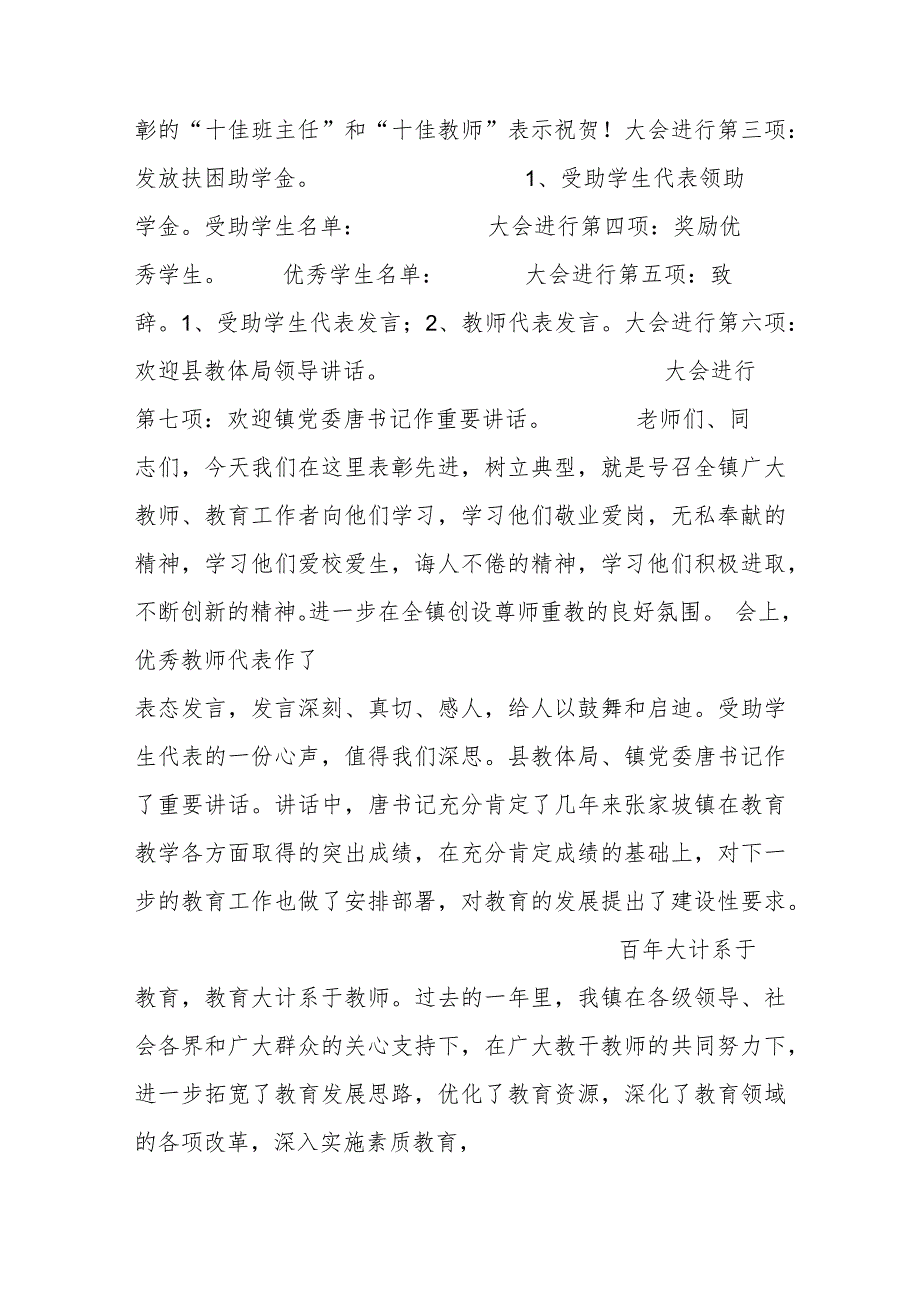 彰的“十佳班主任”和“十佳教师”表示祝贺！大会进行第三项：
发放扶困助学金。 1、受助学生代表领助
学金。受助学生名单： 大会进行第四项：奖励优
秀学生。 优秀学生名单： 大会进行第五项：致
辞。1、受助学生代表发言；2、教师代表发言。大会进行第六项：
欢迎县教体局领导讲话。 大会进行
第七项：欢迎镇党委唐书记作重要讲话。 老师们、同
志们，今天我们在这里表彰先进，树立典型，就是号召全镇广大
教师、教育工作者向他们学习，学习他们敬业爱岗，无私奉献的
精神，学习他们爱校爱生，诲人不倦的精神，学习他们积极进取，
不断创新的精神。进一步在全镇创设尊师重教的良好氛围。 会上，
优秀教师代表作了
表态发言，发言深刻、真切、感人，给人以鼓舞和启迪。受助学
生代表的一份心声，值得我们深思。县教体局、镇党委唐书记作
了重要讲话。讲话中，唐书记充分肯定了几年来张家坡镇在教育
教学各方面取得的突出成绩，在充分肯定成绩的基础上，对下一
步的教育工作也做了安排部署，对教育的发展提出了建设性要求。
百年大计系于
教育，教育大计系于教师。过去的一年里，我镇在各级领导、社
会各界和广大群众的关心支持下，在广大教干教师的共同努力下，
进一步拓宽了教育发展思路，优化了教育资源，深化了教育领域
的各项改革，深入实施素质教育，